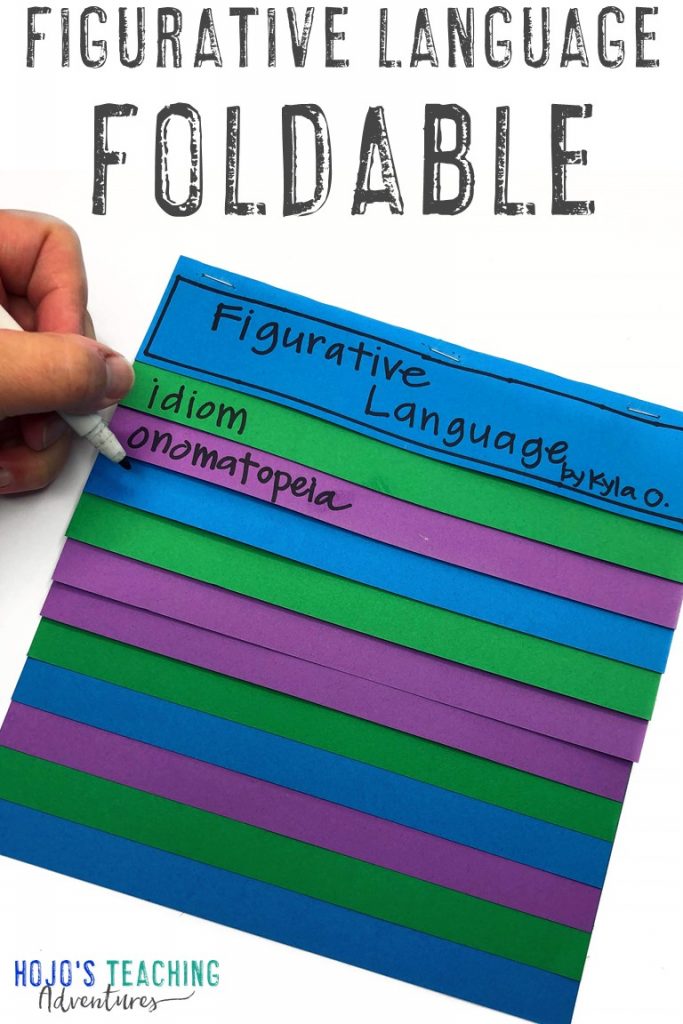 FIGURATIVE LANGUAGE
FOLDABLE
Figurative
Language
by Kyla O.
idiom
onomatopeia
HOJO'S TEACHING
Adventures